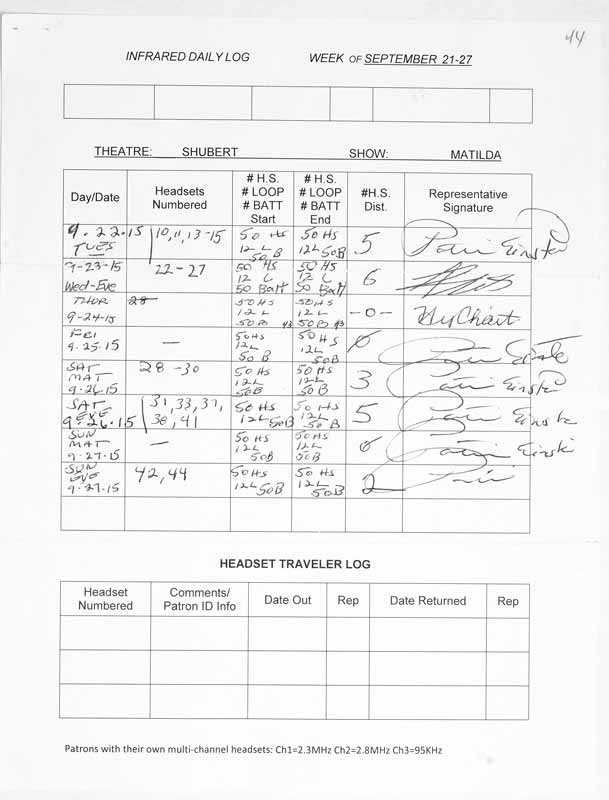 44
INFRARED DAILY LOG WEEK OF SEPTEMBER 21-27
THEATRE: SHUBERT SHOW: MATILDA
Day/Date Headsets Numbered # H.S. # LOOP # BATT Start # H.S. # LOOP # BATT End #H.S. Dist. Representative Signature
9.22.15 TUES 10, 11, 13-15 50 HS 12 L 50 B 50 HS 12L 50B 5
9-23-15 Wed-Eve 22-27 50 HS 12 L 50 Batt 50 HS 12 L 50 Batt 6
THUR 9-24-15 28 50HS 12L 50B 50HS 12L 50B -0-
FRI 9.25.15 — 50HS 12L 50B 50HS 12L 50B 0
SAT MAT 9.26.15 28-30 50HS 12L 50B 50HS 12L 50B 3
SAT EVE 9.26.15 31, 33, 37, 38, 41 50HS 12L 50B 50HS 12L 50B 5
SUN MAT 9.27.15 — 50HS 12L 50B 50HS 12L 50B 0
SUN EVE 9.27.15 42, 44 50HS 12L 50B 50HS 12L 50B 2
HEADSET TRAVELER LOG
Headset Numbered Comments/ Patron ID Info Date Out Rep Date Returned Rep
Patrons with their own multi-channel headsets: Ch1=2.3MHz Ch2=2.8MHz Ch3=95KHz